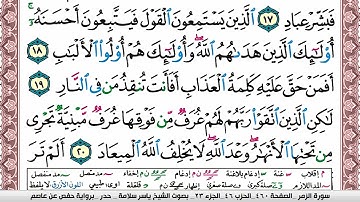 فَبَشِّرْ عِبَادِ ١٧ ٱلَّذِينَ يَسْتَمِعُونَ ٱلْقَوْلَ فَيَتَّبِعُونَ أَحْسَنَهُۥٓ
أُو۟لَٰٓئِكَ ٱلَّذِينَ هَدَىٰهُمُ ٱللَّهُ وَأُو۟لَٰٓئِكَ هُمْ أُو۟لُوا۟ ٱلْأَلْبَٰبِ ١٨
أَفَمَنْ حَقَّ عَلَيْهِ كَلِمَةُ ٱلْعَذَابِ أَفَأَنتَ تُنقِذُ مَن فِى ٱلنَّارِ ١٩
لَٰكِنِ ٱلَّذِينَ ٱتَّقَوْا۟ رَبَّهُمْ لَهُمْ غُرَفٌ مِّن فَوْقِهَا غُرَفٌ مَّبْنِيَّةٌ تَجْرِى
مِن تَحْتِهَا ٱلْأَنْهَٰرُ وَعْدَ ٱللَّهِ لَا يُخْلِفُ ٱللَّهُ ٱلْمِيعَادَ ٢٠ أَلَمْ تَرَ
سورة الزمر . الصفحة ٤٦٠ . الجزء ٢٣ . بصوت الشيخ ياسر سلامة . حدر . برواية حفص عن عاصم